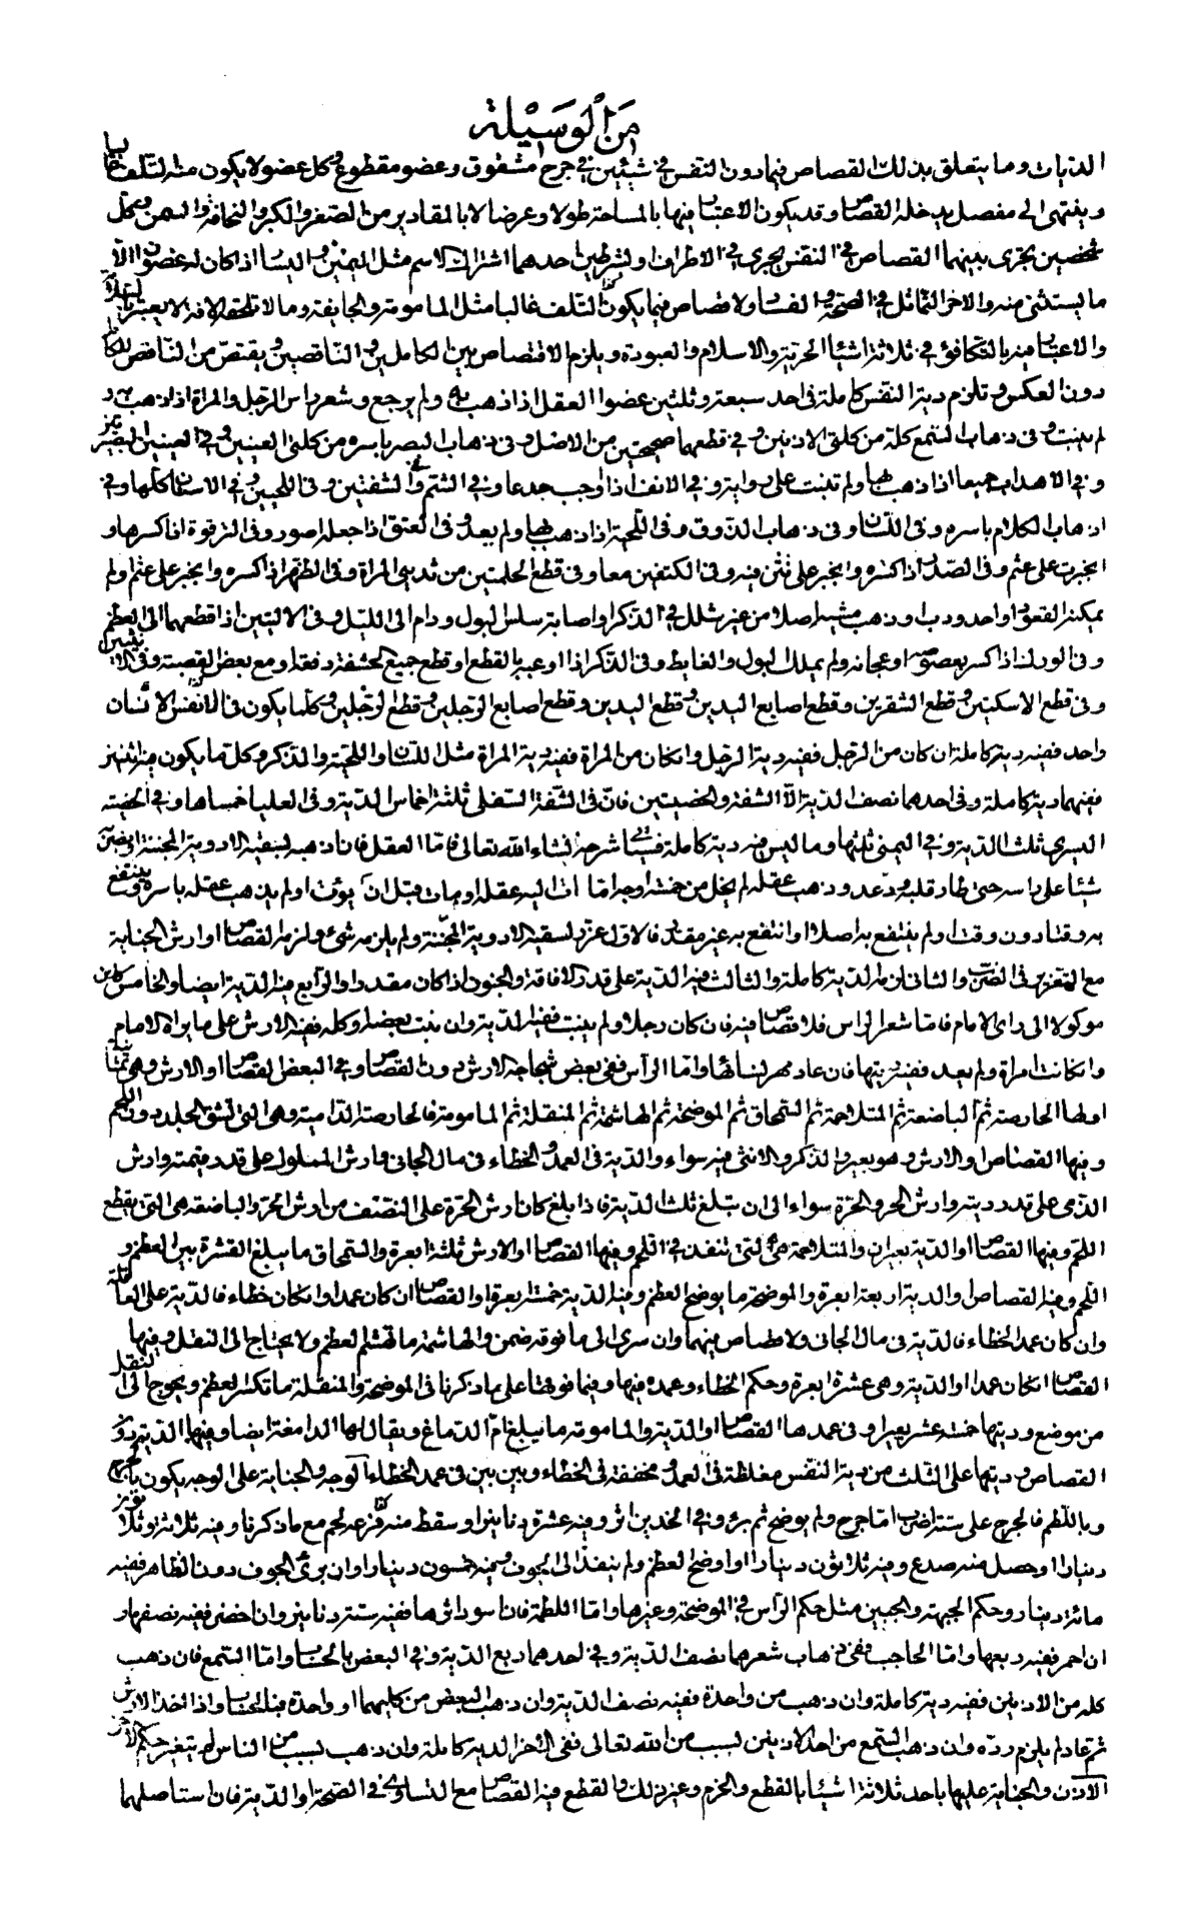 من الوسيلة
الديات وما يتعلق بذلك القصاص فيما دون النفس في شيئين في جرح مشقوق وعضو مقطوع وكل عضو لا يكون منه التلف غالبا
وينتهي الى مفصل يدخله القصاص وقد يكون الاعتبار فيها بالمساحة طولا وعرضا لا بالمقادير من الصغر والكبر والنحافة والسمن وكل
شخصين يجري بينهما القصاص في النفس يجري في الاطراف وبشرطين احدهما اشتراك الاسم مثل اليمين واليسار اذا كان له عضوان الا
ما يستثنى منه والاخر التماثل في الصحة والفساد ولا قصاص فيما يكون التلف غالبا مثل المامومة والجايفة وما لا تلحقه لانه لا يعتبر
والاعتبار فيه بالتكافؤ في ثلاثة اشياء الحرية والاسلام والعبودة ويلزم الاقتصاص بين الكاملين والناقصين ويقتص من الناقص للكامل
دون العكس وتلزم دية النفس كاملة في احد سبعة وثلثين عضوا العقل اذا ذهب به ولم يرجع وشعر راس الرجل والمراة اذا ذهب به و
لم ينبت وفي ذهاب السمع كله من كلتى الاذنين وفي قطعهما صحيحتين من الاصل وفي ذهاب البصر باسره من كلتى العينين وفي العينين
وفي الاهداب جميعا اذا ذهب بها ولم تنبت على رواية وفي الانف اذا اوعب جدعا وفي الشم والشفتين وفي اللحيين وفي الاسنان كلها وفي
اذهاب الكلام باسره وفي اللسان وفي ذهاب الذوق وفي اللحية اذا ذهب بها ولم يعد وفي العنق اذا جعله اصور وفي الترقوة اذا كسرها و
انجبرت على عثم وفي الصلب اذا كسره وانجبر على عثم منه وفي الكتفين معا وفي قطع الحلمتين من ثديي المراة وفي الظهر اذا كسره وانجبر على عثم ولم
يمكنه القعود او احدودب او ذهب مشيه اصلا من غير شلل في الذكر او اصابه سلس البول ودام الى الليل وفي الاليتين اذا قطعهما الى العظم
وفي الورك اذا كسر بعصوصه او عجانه ولم يملك البول والغايط وفي الذكر اذا اوعبه بالقطع او قطع جميع الحشفة دفعة او مع بعض القصبة وفي الانثيين
وفي قطع الاسكتين وقطع الشفرين وقطع اصابع اليدين وقطع اليدين وقطع اصابع الرجلين وقطع الرجلين وكلما يكون في النفس الانسان
واحد ففيه دية كاملة ان كان من الرجل ففيه دية الرجل وان كان من المراة ففيه دية المراة مثل اللسان واللحية والذكر وكل ما يكون منه اثنين
ففيهما دية كاملة وفي احدهما نصف الدية الا الشفة والخصيتين فان في الشفة السفلى ثلثة اخماس الدية وفي العليا خمساها وفي الخصية
اليسرى ثلث الدية وفي اليمنى ثلثها وما ليس فيه دية كاملة فسياتي شرحه انشاء الله تعالى فاما العقل فان ذهب بسقيه الادوية المجننة او ضرب
شيئا على راسه حتى طار قلبه وذعر وذهب عقله لم يخل من خمسة اوجه اما اثاب اليه عقله او مات قبل ان يؤب او لم يذهب عقله باسره وينتفع
به وقتا دون وقت او لم ينتفع به اصلا او انتفع به غير مقدار فالاول عزر لسقيه الادوية المجننة ولم يلزمه شئ ولزمه القصاص او ارش الجناية
مع التعزير في الضرب والثاني لزمه الدية كاملة والثالث فيه الدية على قدر الافاقة والجنون اذا كان مقدرا والرابع فيه الدية ايضا والخامس كان
موكولا الى راي الامام فاما شعر الراس فلا قصاص فيه فان كان رجلا ولم ينبت ففيه الدية وان نبت بعضه او كله ففيه الارش على ما يراه الامام
وان كانت امراة ولم يعد ففيه ديتها فان عاد مهر نسائها واما الراس ففي بعض شجاجه الارش دون القصاص وفي البعض القصاص او الارش وهي ثمانية
اولها الحارصة ثم الباضعة ثم المتلاحمة ثم السمحاق ثم الموضحة ثم الهاشمة ثم المنقلة ثم المامومة فالحارصة الدامية وهي التي تشق الجلد دون اللحم
وفيها القصاص او الارش وهو بعير والذكر والانثى فيه سواء والدية في العمد والخطاء في مال الجاني وارش المملوك على قدر قيمته وارش
الذمي على قدر ديته وارش الحر والحرة سواء الى ان تبلغ ثلث الدية فاذا بلغ كان ارش الحرة على النصف من ارش الحر والباضعة هي التي يقطع
اللحم وفيها القصاص او الدية بعيران والمتلاحمة هي التي تنفذ في اللحم وفيها القصاص او الارش ثلثة ابعرة والسمحاق ما يبلغ القشرة بين العظم و
اللحم وفيه القصاص او الدية اربعة ابعرة والموضحة ما يوضح العظم وفيه الدية خمسة ابعرة او القصاص ان كان عمدا وان كان خطاء فالدية على العاقلة
وان كان عمد الخطاء فالدية في مال الجاني ولا قصاص فيهما وان سرى الى ما فوقه ضمن والهاشمة ما تهشم العظم ولا يحتاج الى النقل وفيها
القصاص ان كان عمدا او الدية وهي عشرة ابعرة وحكم الخطاء وعمده فيها وفيما فوقها على ما ذكرنا في الموضحة والمنقلة ما تكسر العظم ويحوج الى النقل
من موضع وديتها خمسة عشر بعيرا وفي عمدها القصاص او الدية والمامومة ما يبلغ ام الدماغ ويقال لها الدامغة ايضا وفيها الدية دون
القصاص وديتها على الثلث من دية النفس مغلظة في العمد ومخففة في الخطاء وبين بين في عمد الخطاء الوجه والجناية على الوجه يكون بالجرح
وباللطم فالجرح على ستة اضرب اما جرح ولم يوضح ثم برء وفي الخدين اثر وفيه عشرة دنانير او سقط منه قزعة لحم مع ما ذكرنا وفيه ثلاثة وثلاثون
دينارا او حصل منه صدع وفيه ثلاثون دينارا او اوضح العظم ولم ينفذ الى الجوف وفيه خمسون دينارا وان برئ الجوف دون الظاهر ففيه
مائة دينار وحكم الجبهة والجبين مثل حكم الراس في الموضحة وغيرها واما اللطمة فان اسود اثرها ففيه ستة دنانير وان اخضر ففيه نصفها و
ان احمر ففيه ربعها واما الحاجب ففي ذهاب شعرهما نصف الدية وفي احدهما ربع الدية وفي البعض بالحساب واما السمع فان ذهب
كله من الاذنين ففيه دية كاملة وان ذهب من واحدة ففيه نصف الدية وان ذهب البعض من كليهما او واحدة فبالحساب واذا اخذ الارش
ثم عاد لم يلزم رده وان ذهب السمع من احد الاذنين بسبب من الله تعالى ففي الاخر الدية كاملة وان ذهب بسبب من الناس لم يتغير حكم الاخر
الاذن والجناية عليها باحد ثلاثة اشياء بالقطع والخرم وغير ذلك والقطع فيه القصاص مع التساوي في الصحة او الدية فان استاصلهما